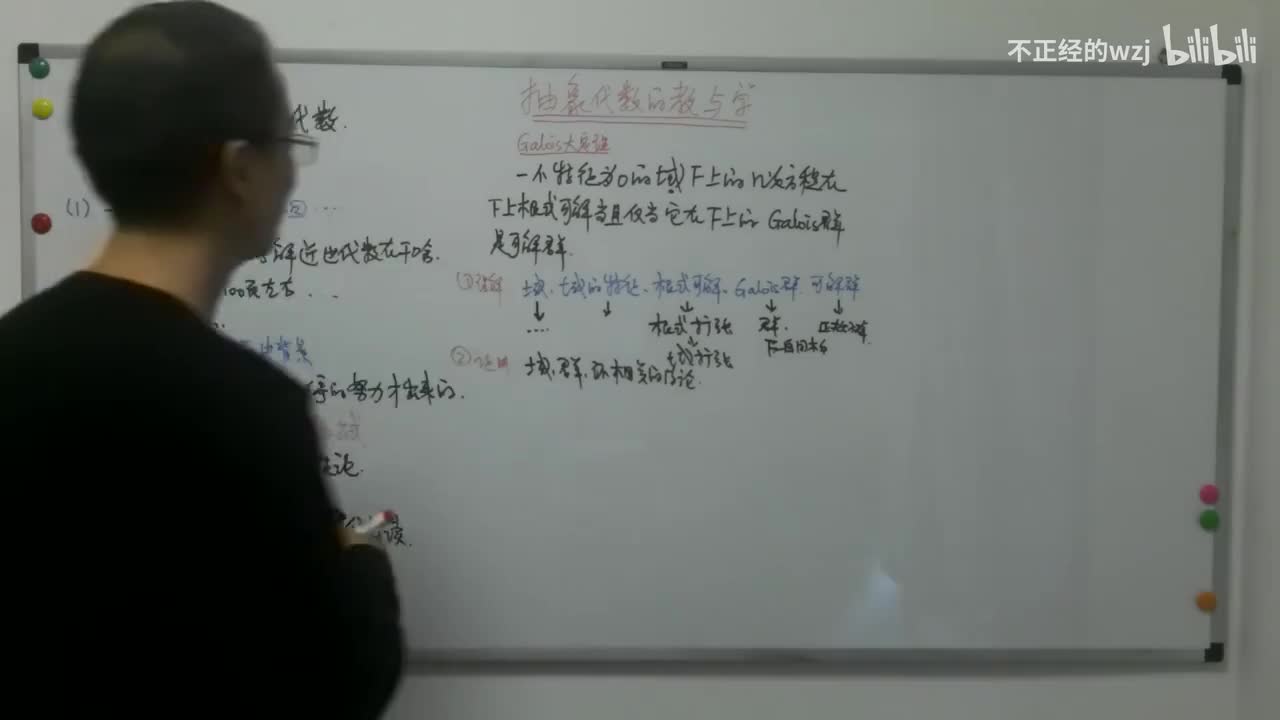 不正经的wzj bilibili
抽象代数的教与学
Galois大定理
一个特征为0的域F上的n次方程在
F上根式可解当且仅当它在F上的Galois群
是可解群.
①理解 域、域的特征、根式可解、Galois群、可解群
↓ ↓ ↓ ↓ ↓
.... 根式扩张 群.
↓
域扩张
② 域、群、环相关的理论.
代数.
(1) ② ...
解近世代数在干啥.
100页左右...
背景
的努力才出来的.
论.
读.